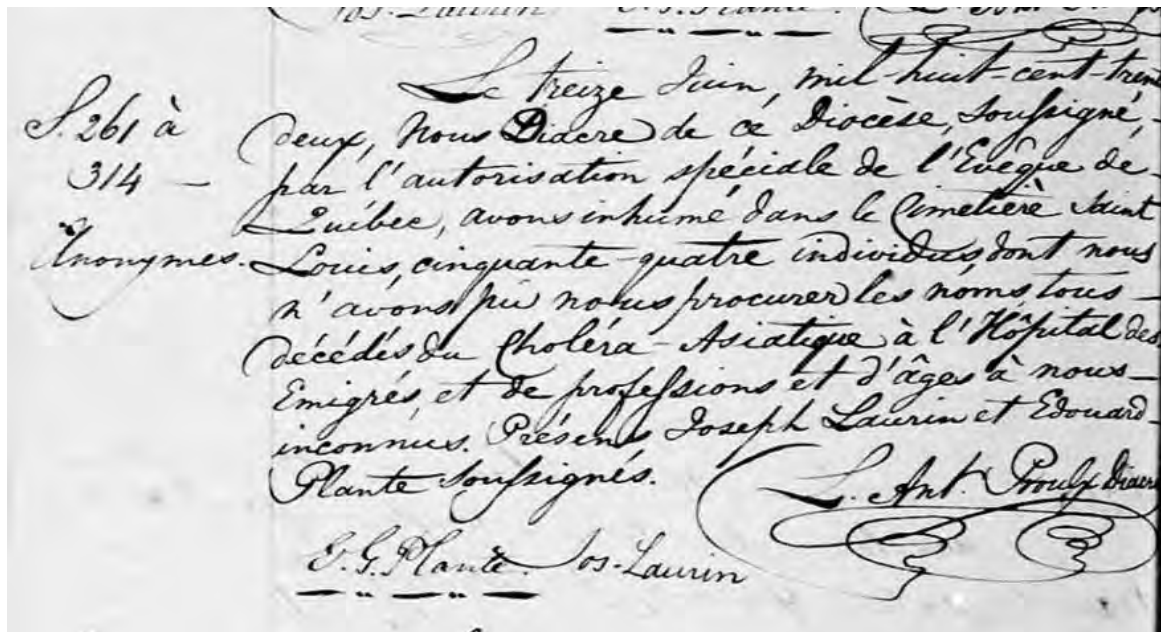 Jos. Laurin E. G. Plante.
Le treize Juin, mil-huit-cent-trent
S. 261 à
deux, Nous Diacre de ce Diocèse, soussigné,
314 —
par l'autorisation spéciale de l'Evêque de
Québec, avons inhumé dans le Cimetière Saint
Anonymes.
Louis, cinquante-quatre individus, dont nous
n'avons pu nous procurer les noms, tous
décédés du Choléra-Asiatique à l'Hôpital des
Emigrés, et de professions et d'âges à nous
inconnus. Présens Joseph Laurin et Edouard
Plante soussignés.
L. Ant. Proulx Diacre
E. G. Plante. Jos. Laurin